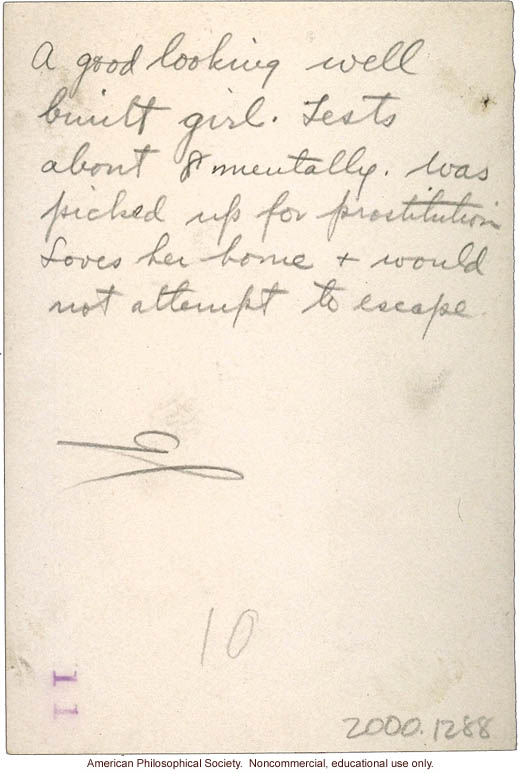 A good looking well
built girl. Tests
about 8 mentally. was
picked up for prostitution
Loves her home + would
not attempt to escape.
10
11
2000.1288
American Philosophical Society. Noncommercial, educational use only.